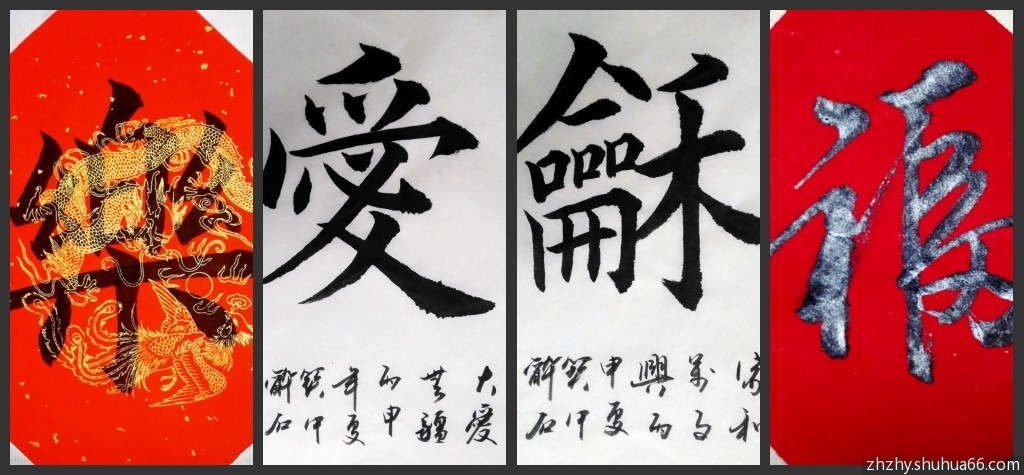 樂
愛
大愛
無疆
丙申
年夏
龢
家和
萬事
興丙
申夏
福
zhzhy.shuhua66.com